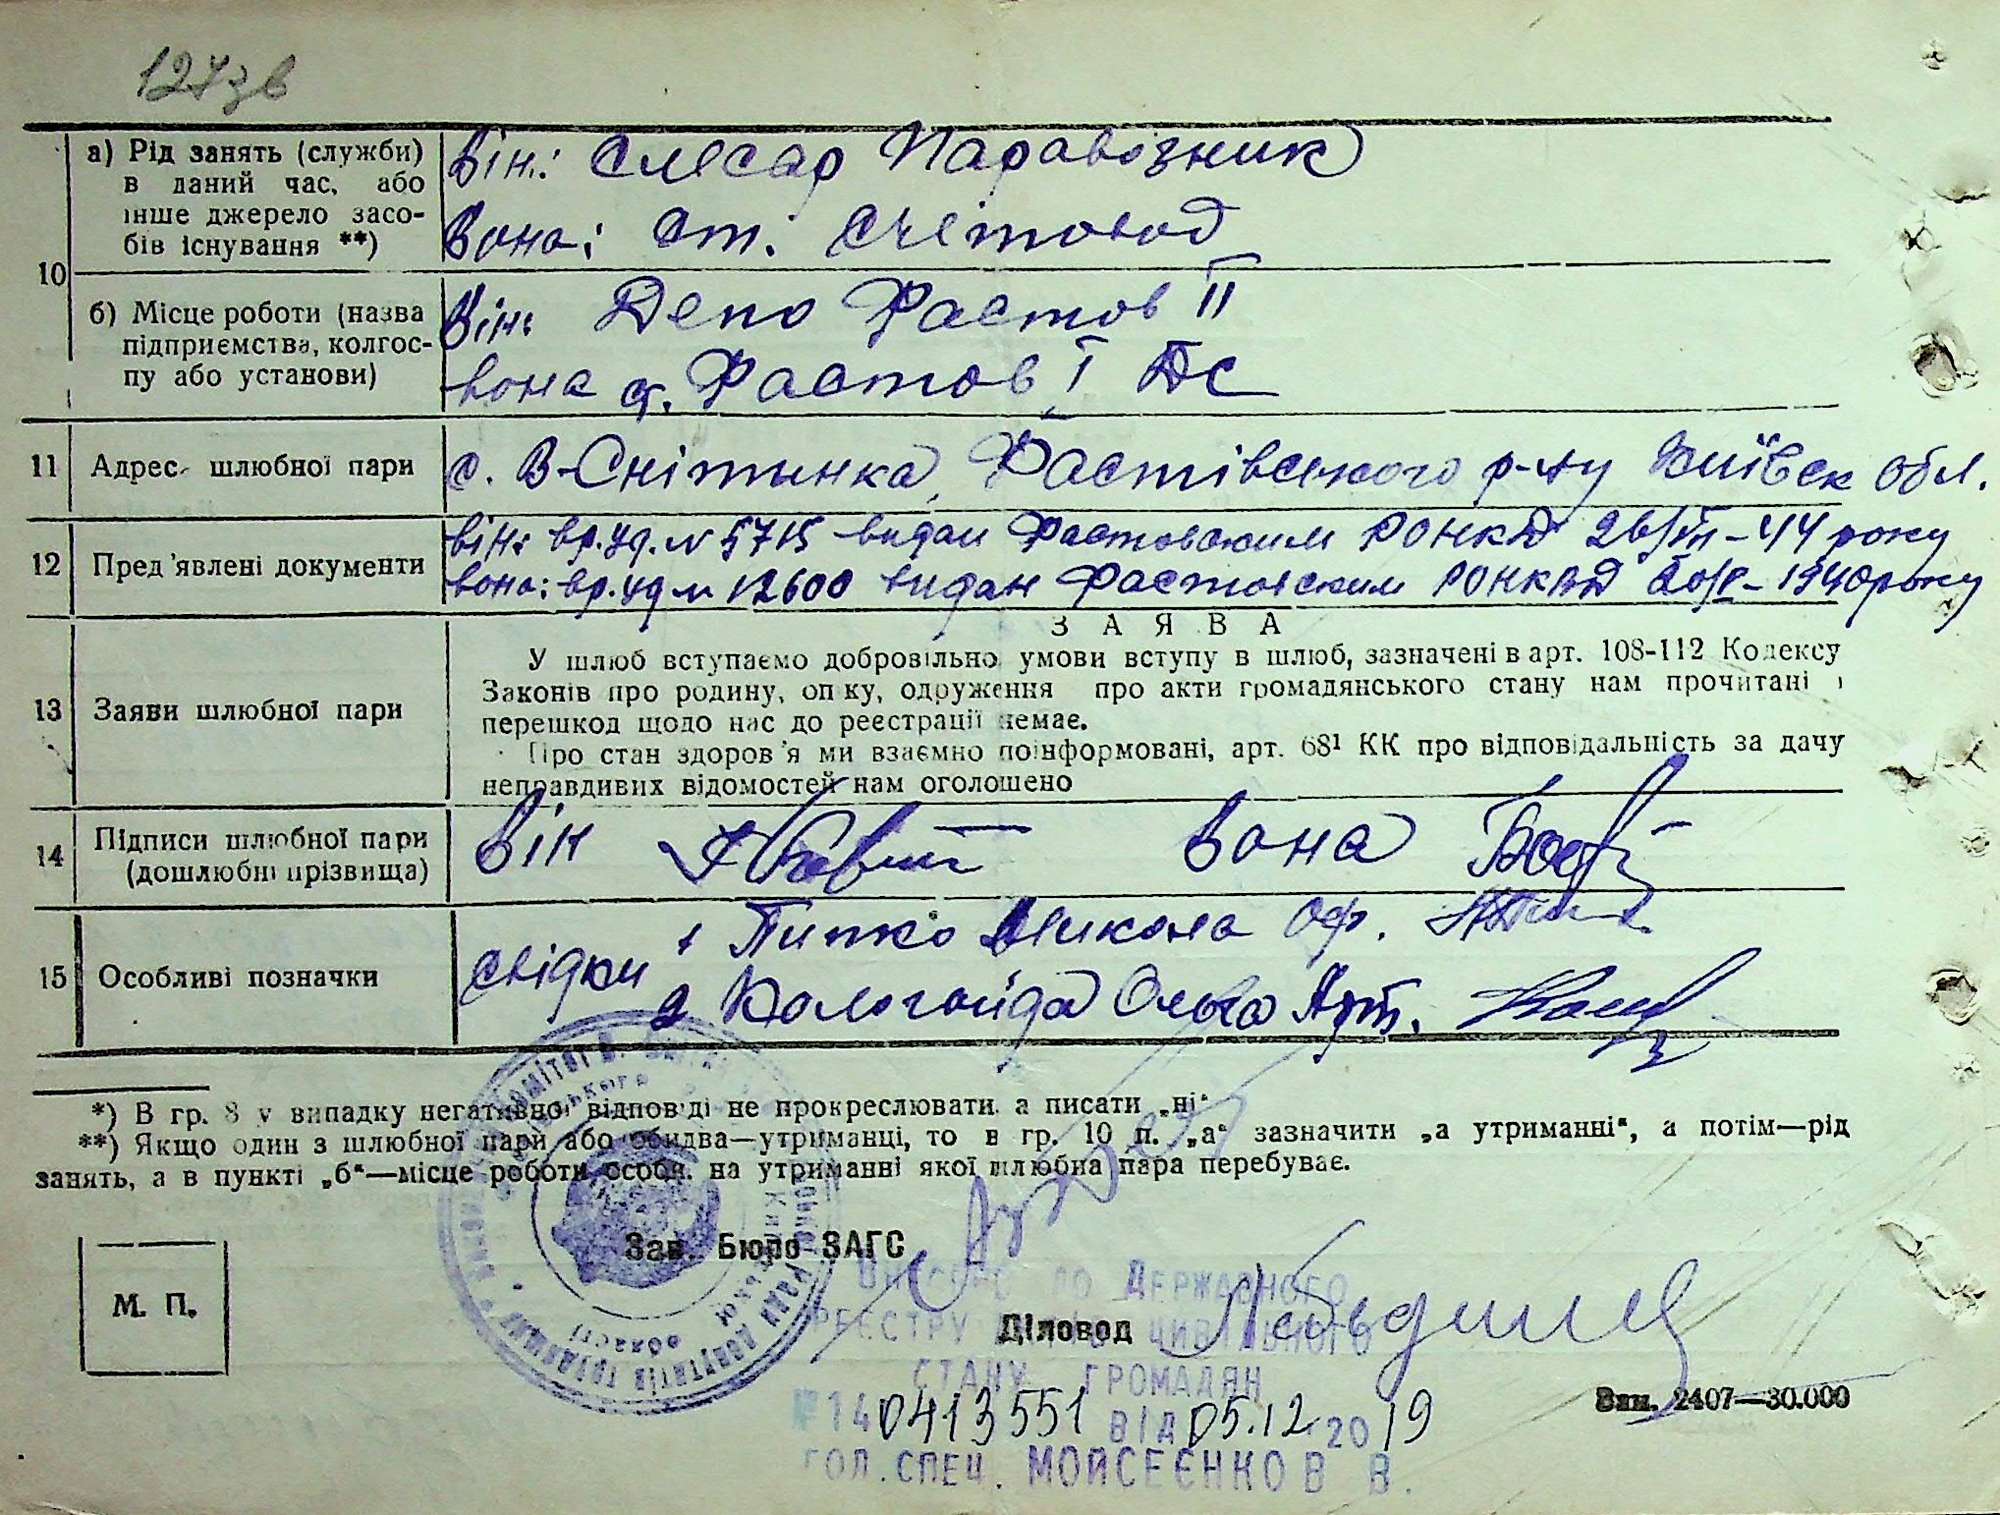 127зв
10
а) Рід занять (служби) в даний час, або інше джерело засобів існування **)
Він: Слесар Паравозник
Вона: Ст. Счетовод
б) Місце роботи (назва підприємства, колгоспу або установи)
Він: Депо Фастов II
Вона ст. Фастов I ДС
11 Адрес шлюбної пари
с. В-Снітинка, Фастівського р-ну Київск обл.
12 Пред'явлені документи
він: вр. уд. № 5715 видан Фастовским РОНКВД 26/VII-44 року
вона: вр. уд № 12600 видан Фастовским РОНКВД 20/V-1940 року
13 Заяви шлюбної пари
ЗАЯВА
У шлюб вступаємо добровільно, умови вступу в шлюб, зазначені в арт. 108-112 Кодексу
Законів про родину, опіку, одруження про акти громадянського стану нам прочитані і
перешкод щодо нас до реєстрації немає.
Про стан здоров'я ми взаємно поінформовані, арт. 68¹ КК про відповідальність за дачу
неправдивих відомостей нам оголошено
14 Підписи шлюбної пари (дошлюбні прізвища)
Він Вона
15 Особливі позначки
свідки 1 Типко Микола Оф.
2 Кологойда Ольга Арт.
*) В гр. 8 у випадку негативної відповіді не прокреслювати, а писати „ні“
**) Якщо один з шлюбної пари або обидва—утриманці, то в гр. 10 п. „а“ зазначити „а утриманні“, а потім—рід
занять, а в пункті „б“—місце роботи особи, на утриманні якої шлюбна пара перебуває.
Зав. Бюро ЗАГС
М. П.
Діловод
ВНЕСЕНО ДО ДЕРЖАВНОГО
РЕЄСТРУ АКТІВ ЦИВІЛЬНОГО
СТАНУ ГРОМАДЯН
№ 140413551 ВІД 05.12 2019
ГОЛ. СПЕЦ. МОЙСЕЄНКО В В.
Зам. 2407—30.000